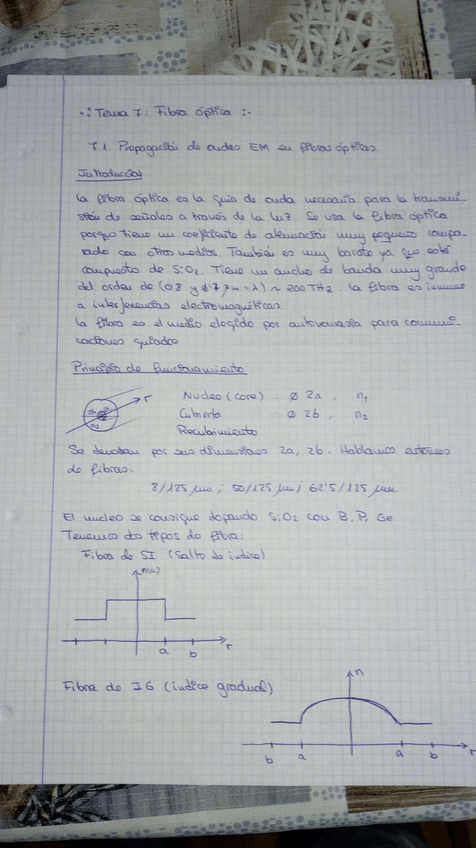 ∴ Tema 7: Fibra óptica ∴
7.1. Propagación de ondas EM en fibras ópticas.
Introducción
La fibra óptica es la guía de onda necesaria para la transmi
sión de señales a través de la luz. Se usa la fibra óptica
porque tiene un coeficiente de atenuación muy pequeño compa-
rado con otros medios. También es muy barato ya que está
compuesto de SiO2. Tiene un ancho de banda muy grande
del orden de (0'8 y 1'7 μm = λ) ~ 200 THz. La fibra es inmune
a interferencias electromagnéticas.
La fibra es el medio elegido por antonomasia para comuni-
caciones guiadas
Principio de funcionamiento
r
Núcleo (core) : ⌀ 2a , n1
Cubierta ⌀ 2b , n2
Recubrimiento
n2
Se denotan por sus dimensiones 2a, 2b. Hablamos entonces
de fibras:
8/125 μm ; 50/125 μm ; 62'5/125 μm
El núcleo se consigue dopando SiO2 con B, P, Ge
Tenemos dos tipos de fibra:
Fibra de SI (Salto de índice)
n(r)
a b r
Fibra de IG (índice gradual)
n
b a a b r